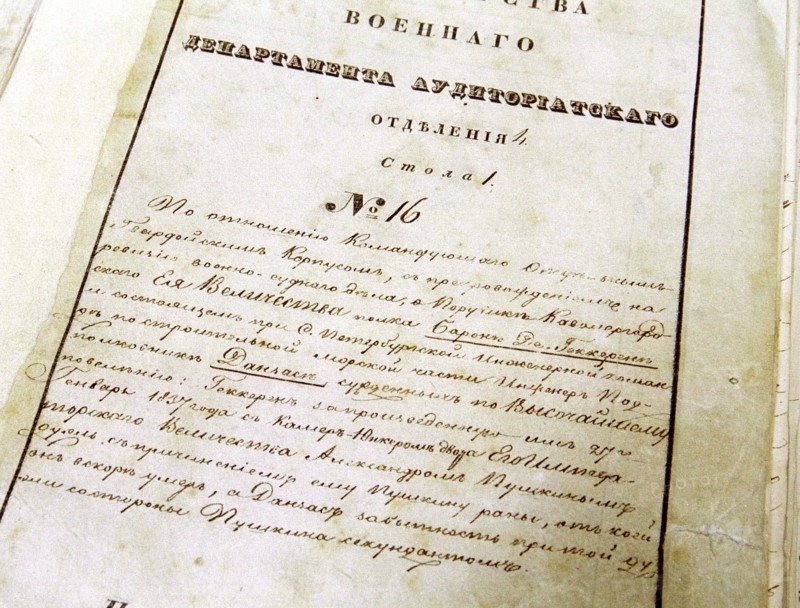 СТВА
ВОЕННАГО
ДЕПАРТАМЕНТА АУДИТОРІАТСКАГО
ОТДѢЛЕНІЯ 4.
Стола 1.
№ 16
По отношенію Командующаго Отдѣльнымъ
Гвардейскимъ Корпусомъ, съ препровожденіемъ на
ревизію военно-суднаго дѣла, о Поручикѣ Кавалергард
скаго Ея Величества полка Баронѣ Де-Геккеренѣ
и состоящемъ при С. Петербургской Инженерной коман
дѣ по строительной Морской части Инженеръ Под-
полковникѣ Данзасѣ, сужденныхъ по Высочайшему
повелѣнію: Геккеренъ за произведенную имъ 27го
Генваря 1837 года съ Камеръ-Юнкеромъ двора Его Импера-
торскаго Величества Александромъ Пушкинымъ
дуэль, съ причиненіемъ ему Пушкину раны, отъ коей
онъ вскорѣ умеръ, а Данзасъ за бытность при той дуэ
ли со стороны Пушкина секундантомъ.